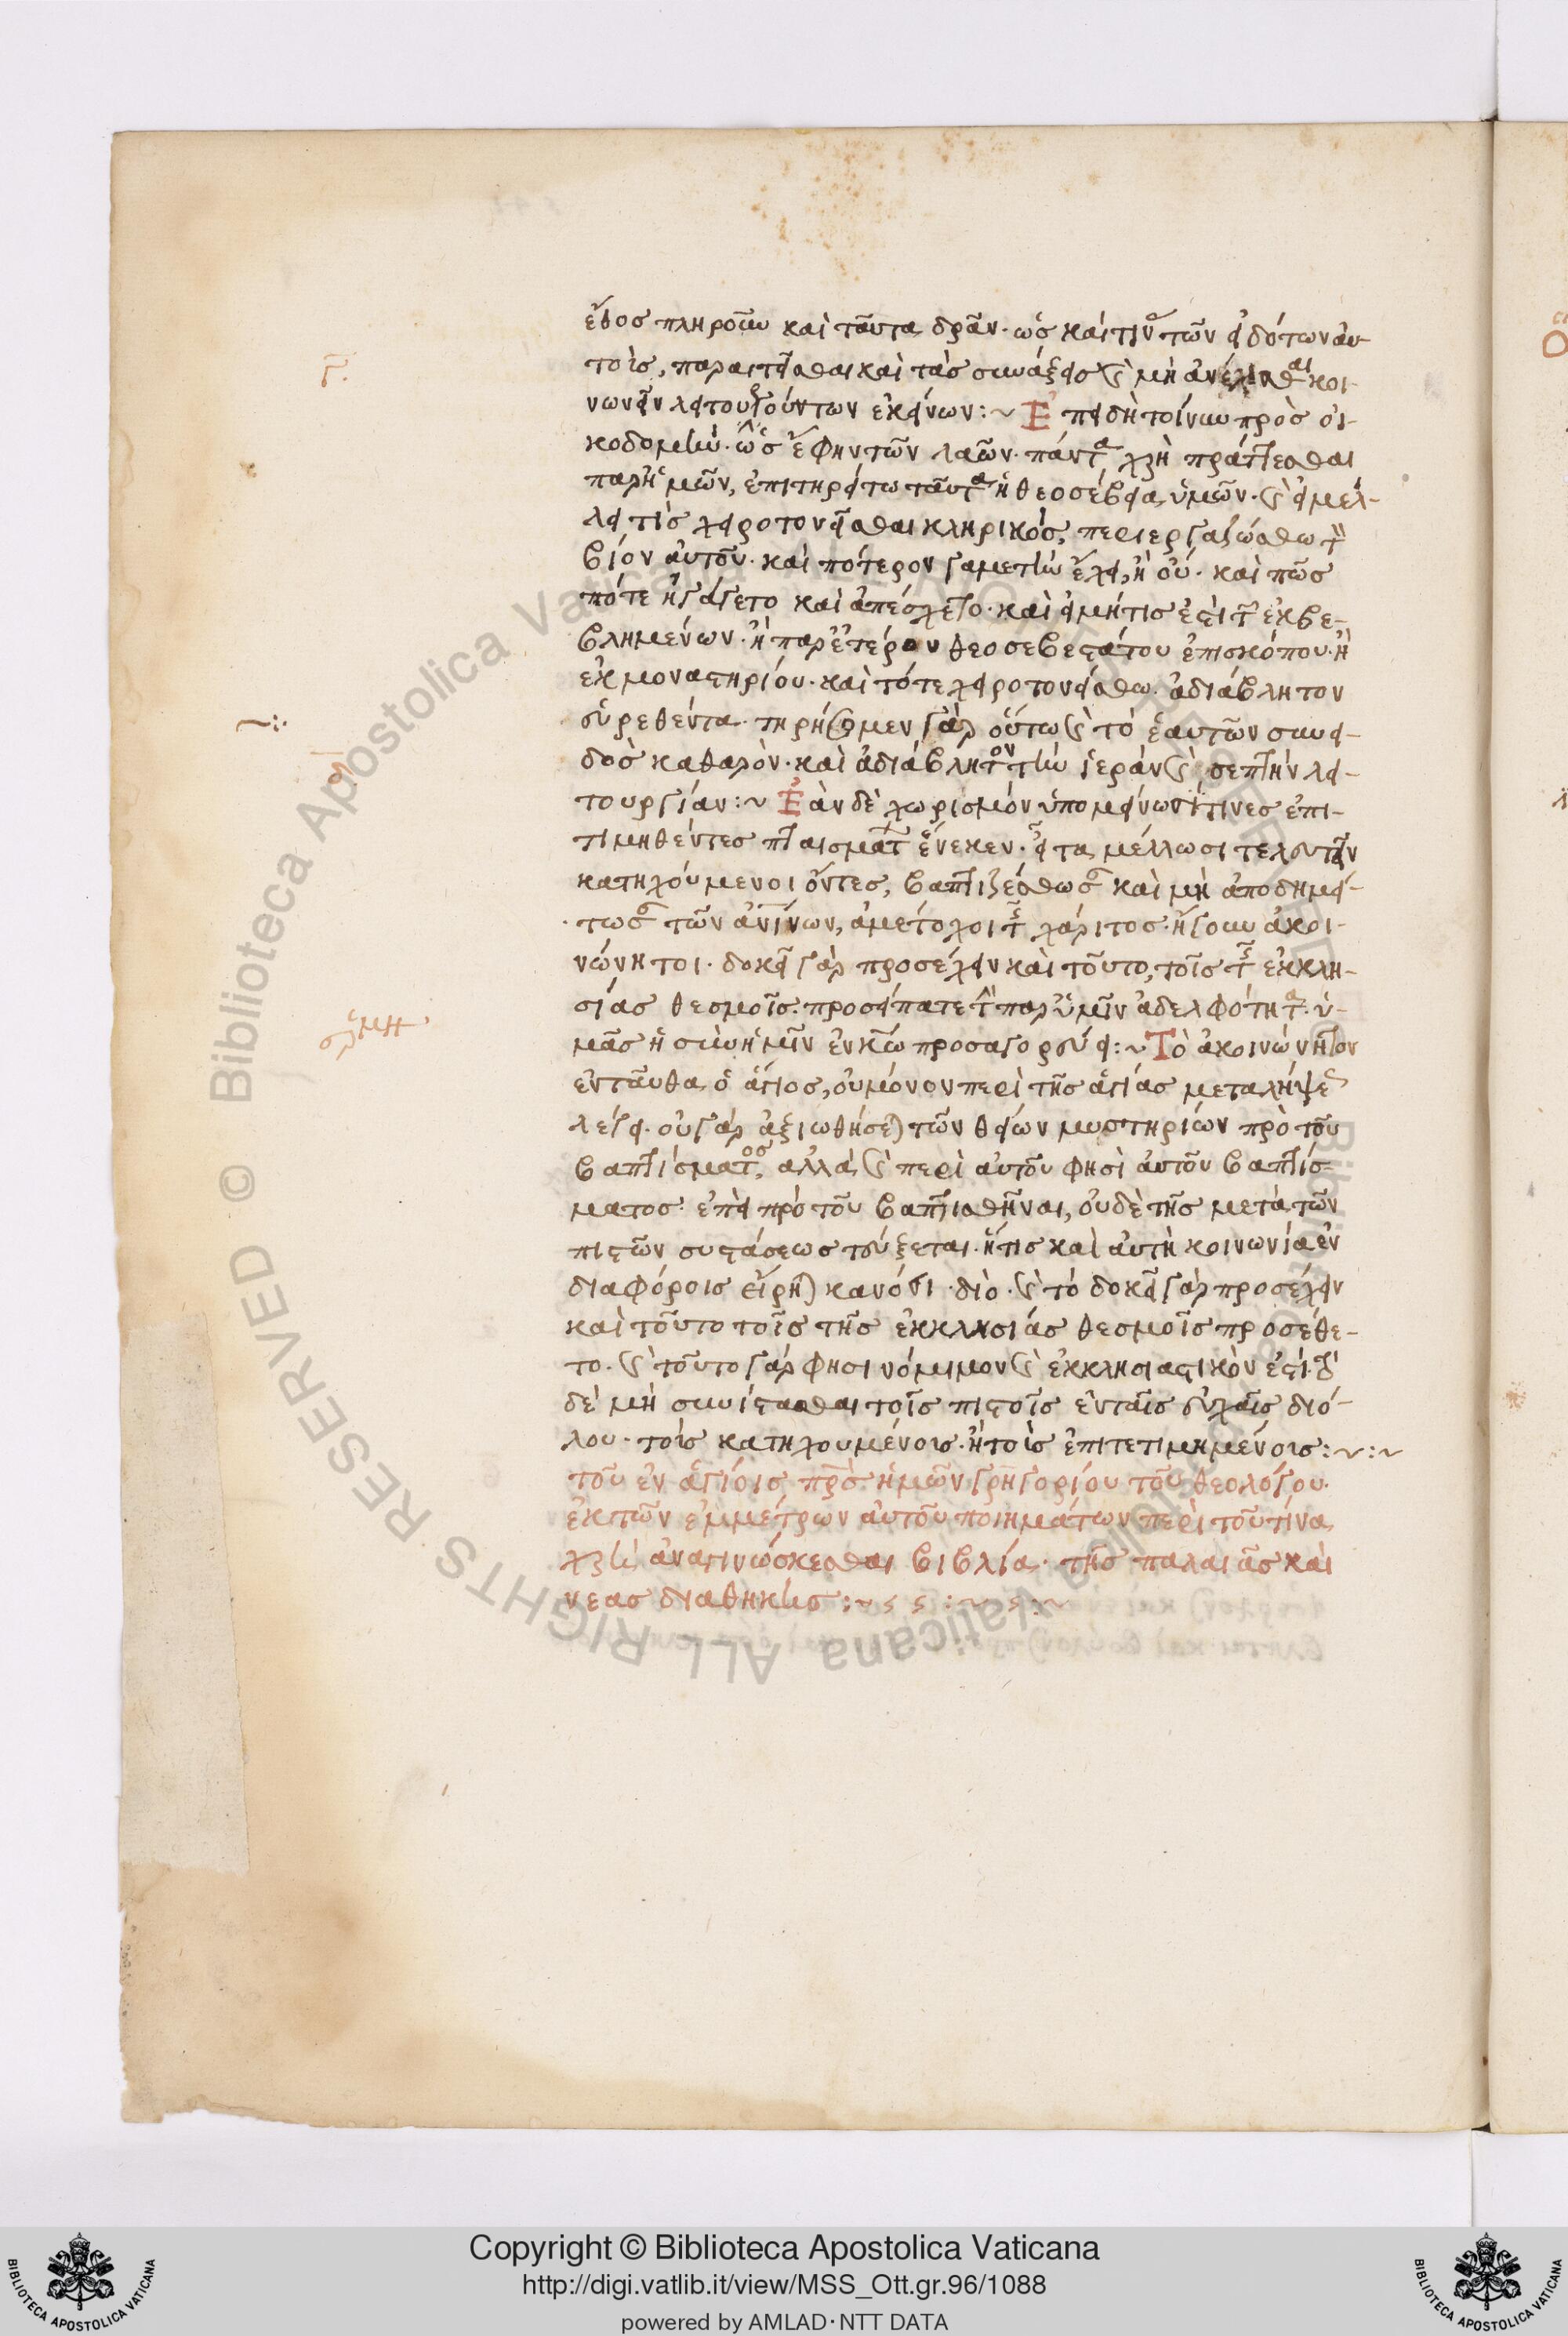 ἔθος πληροῦν καὶ ταῦτα δρᾶν· ὡς καί τινας τῶν εἰδότων αὐ-
τοὺς, παραιτεῖσθαι καὶ τὰς συνάξεις καὶ μὴ ἀνέχεσθαι κοι-
Γ.
νωνεῖν λειτουργούντων ἐκείνων:~ Ἐπειδὴ τοίνυν πρὸς οἰ-
κοδομὴν· ὡς ἔφην τῶν λαῶν· πάντα χρὴ πράττεσθαι
παρ' ἡμῶν, ἐπιτηρείτω ταῦτα ἡ θεοσέβεια ὑμῶν· καὶ εἰ μέλ-
λει τίς χειροτονεῖσθαι κληρικός, περιεργαζέσθω τὸν
βίον αὐτοῦ· καὶ πότερον γαμετὴν ἔχει, ἢ οὔ· καὶ πῶς
πότε ἠγάγετο καὶ ἀπέσχετο· καὶ εἰ μήτις ἐστὶ τῶν ἐκβε-
βλημένων· ἢ παρ' ἑτέρου θεοσεβεστάτου ἐπισκόπου· ἢ
ἐκ μοναστηρίου· καὶ τότε χειροτονείσθω ἀδιάβλητον
εὑρεθέντα· τηρήσομεν γὰρ οὕτω καὶ τὸ ἑαυτῶν συνει-
~:·
δὸς καθαρὸν· καὶ ἀδιάβλητον τὴν ἱερὰν καὶ σεπτὴν λει-
τουργίαν:~ Ἐὰν δὲ χωρισμὸν ὑπομείνωσί τινες ἐπι-
τιμηθέντες πταισμάτων ἕνεκεν· εἶτα μέλλωσι τελευτᾶν
κατηχούμενοι ὄντες, βαπτιζέσθωσαν καὶ μὴ ἀποδημεί-
τωσαν τῶν ἀνων, ἀμέτοχοι τῆς χάριτος· ἤγουν ἀκοι-
νώνητοι· δοκεῖ γὰρ προσέχειν καὶ τοῦτο, τοῖς τῆς ἐκκλη-
σίας θεσμοῖς· προσείπατε τὴν παρ' ὑμῖν ἀδελφότητα· ὑ-
μᾶς ἡ σὺν ἡμῖν ἐν κω προσαγορεύει:~ Τὸ ἀκοινώνητον
ἐνταῦθα ὁ ἅγιος, οὐ μόνον περὶ τῆς ἁγίας μεταλήψεως
λέγει· οὐ γὰρ ἀξιωθήσεται τῶν θείων μυστηρίων πρὸ τοῦ
βαπτίσματος, ἀλλὰ καὶ περὶ αὐτοῦ φησὶ αὐτοῦ βαπτίσ-
ματος· ἐπεὶ πρὸ τοῦ βαπτισθῆναι, οὐδὲ τῆς μετὰ τῶν
πιστῶν συστάσεως τεύξεται· ἥτις καὶ αὐτὴ κοινωνία ἐν
διαφόροις εἴρηται κανόσι· διὸ· καὶ τὸ δοκεῖ γὰρ προσέχειν
καὶ τοῦτο τοῖς τῆς ἐκκλησίας θεσμοῖς προσέθε-
το· καὶ τοῦτο γάρ φησι νόμιμον καὶ ἐκκλησιαστικὸν ἐστὶ· τὸ
δὲ μὴ συνίστασθαι τοῖς πιστοῖς ἐν ταῖς εὐχαῖς διό-
λου· τοὺς κατηχουμένους· ἢ τοὺς ἐπιτετιμημένους:~:~
τοῦ ἐν ἁγίοις πρς ἡμῶν γρηγορίου τοῦ θεολόγου·
ἐκ τῶν ἐμμέτρων αὐτοῦ ποιημάτων περὶ τοῦ τίνα
χρὴ ἀναγινώσκεσθαι βιβλία· τῆς παλαιᾶς καὶ
νέας διαθήκης:~
Copyright © Biblioteca Apostolica Vaticana
http://digi.vatlib.it/view/MSS_Ott.gr.96/1088
powered by AMLAD·NTT DATA
BIBLIOTECA APOSTOLICA VATICANA
BIBLIOTECA APOSTOLICA VATICANA